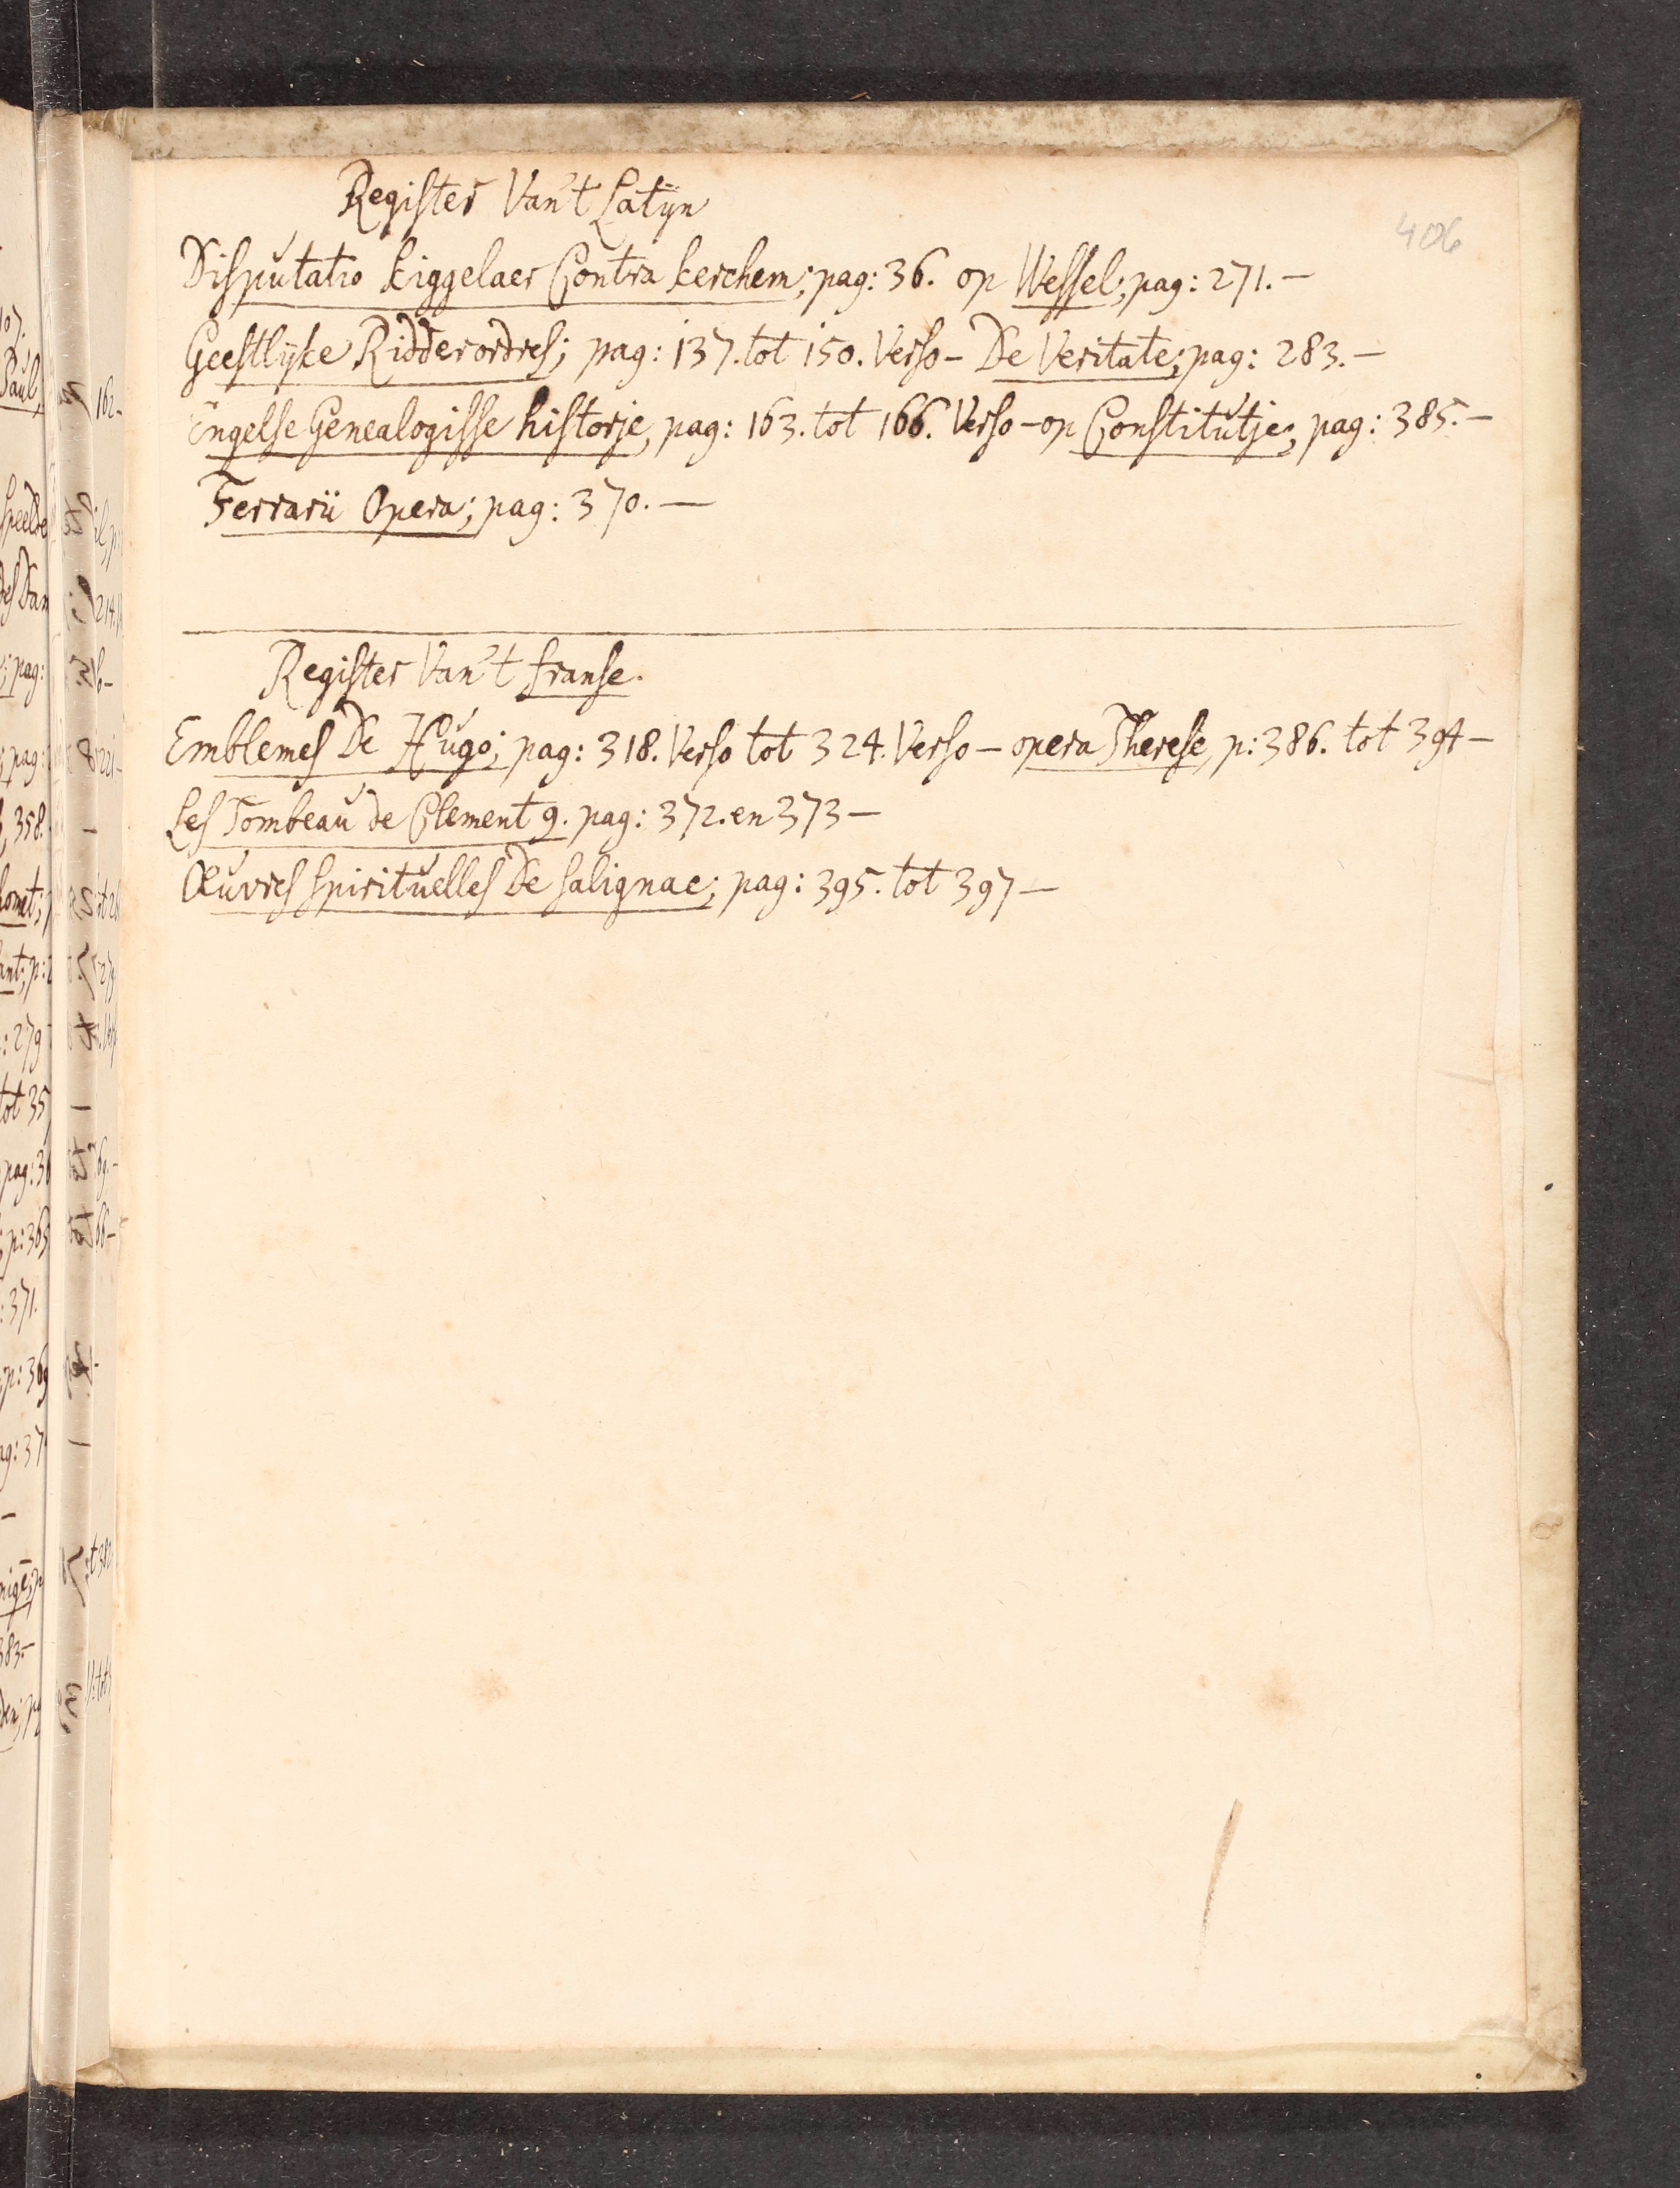 Register Van't Latÿn
406
Disputatio kiggelaer Contra kerchem; pag: 36. op Wessel; pag: 271. –
Geestlÿke Ridderordres; pag: 137. tot 150. Verso – De Veritate; pag: 283. –
Engelse Genealogisse historje, pag: 163. tot 166. Verso – op Constitutje; pag: 385. –
Ferrarii Opera; pag: 370. –
Register Van't franse.
Emblemes De Hugo; pag: 318. Verso tot 324. Verso – opera Therese, p: 386. tot 394 –
Les Tombeau de Clement 9. pag: 372. en 373 –
Œuvres spirituelles De salignac; pag: 395. tot 397 –